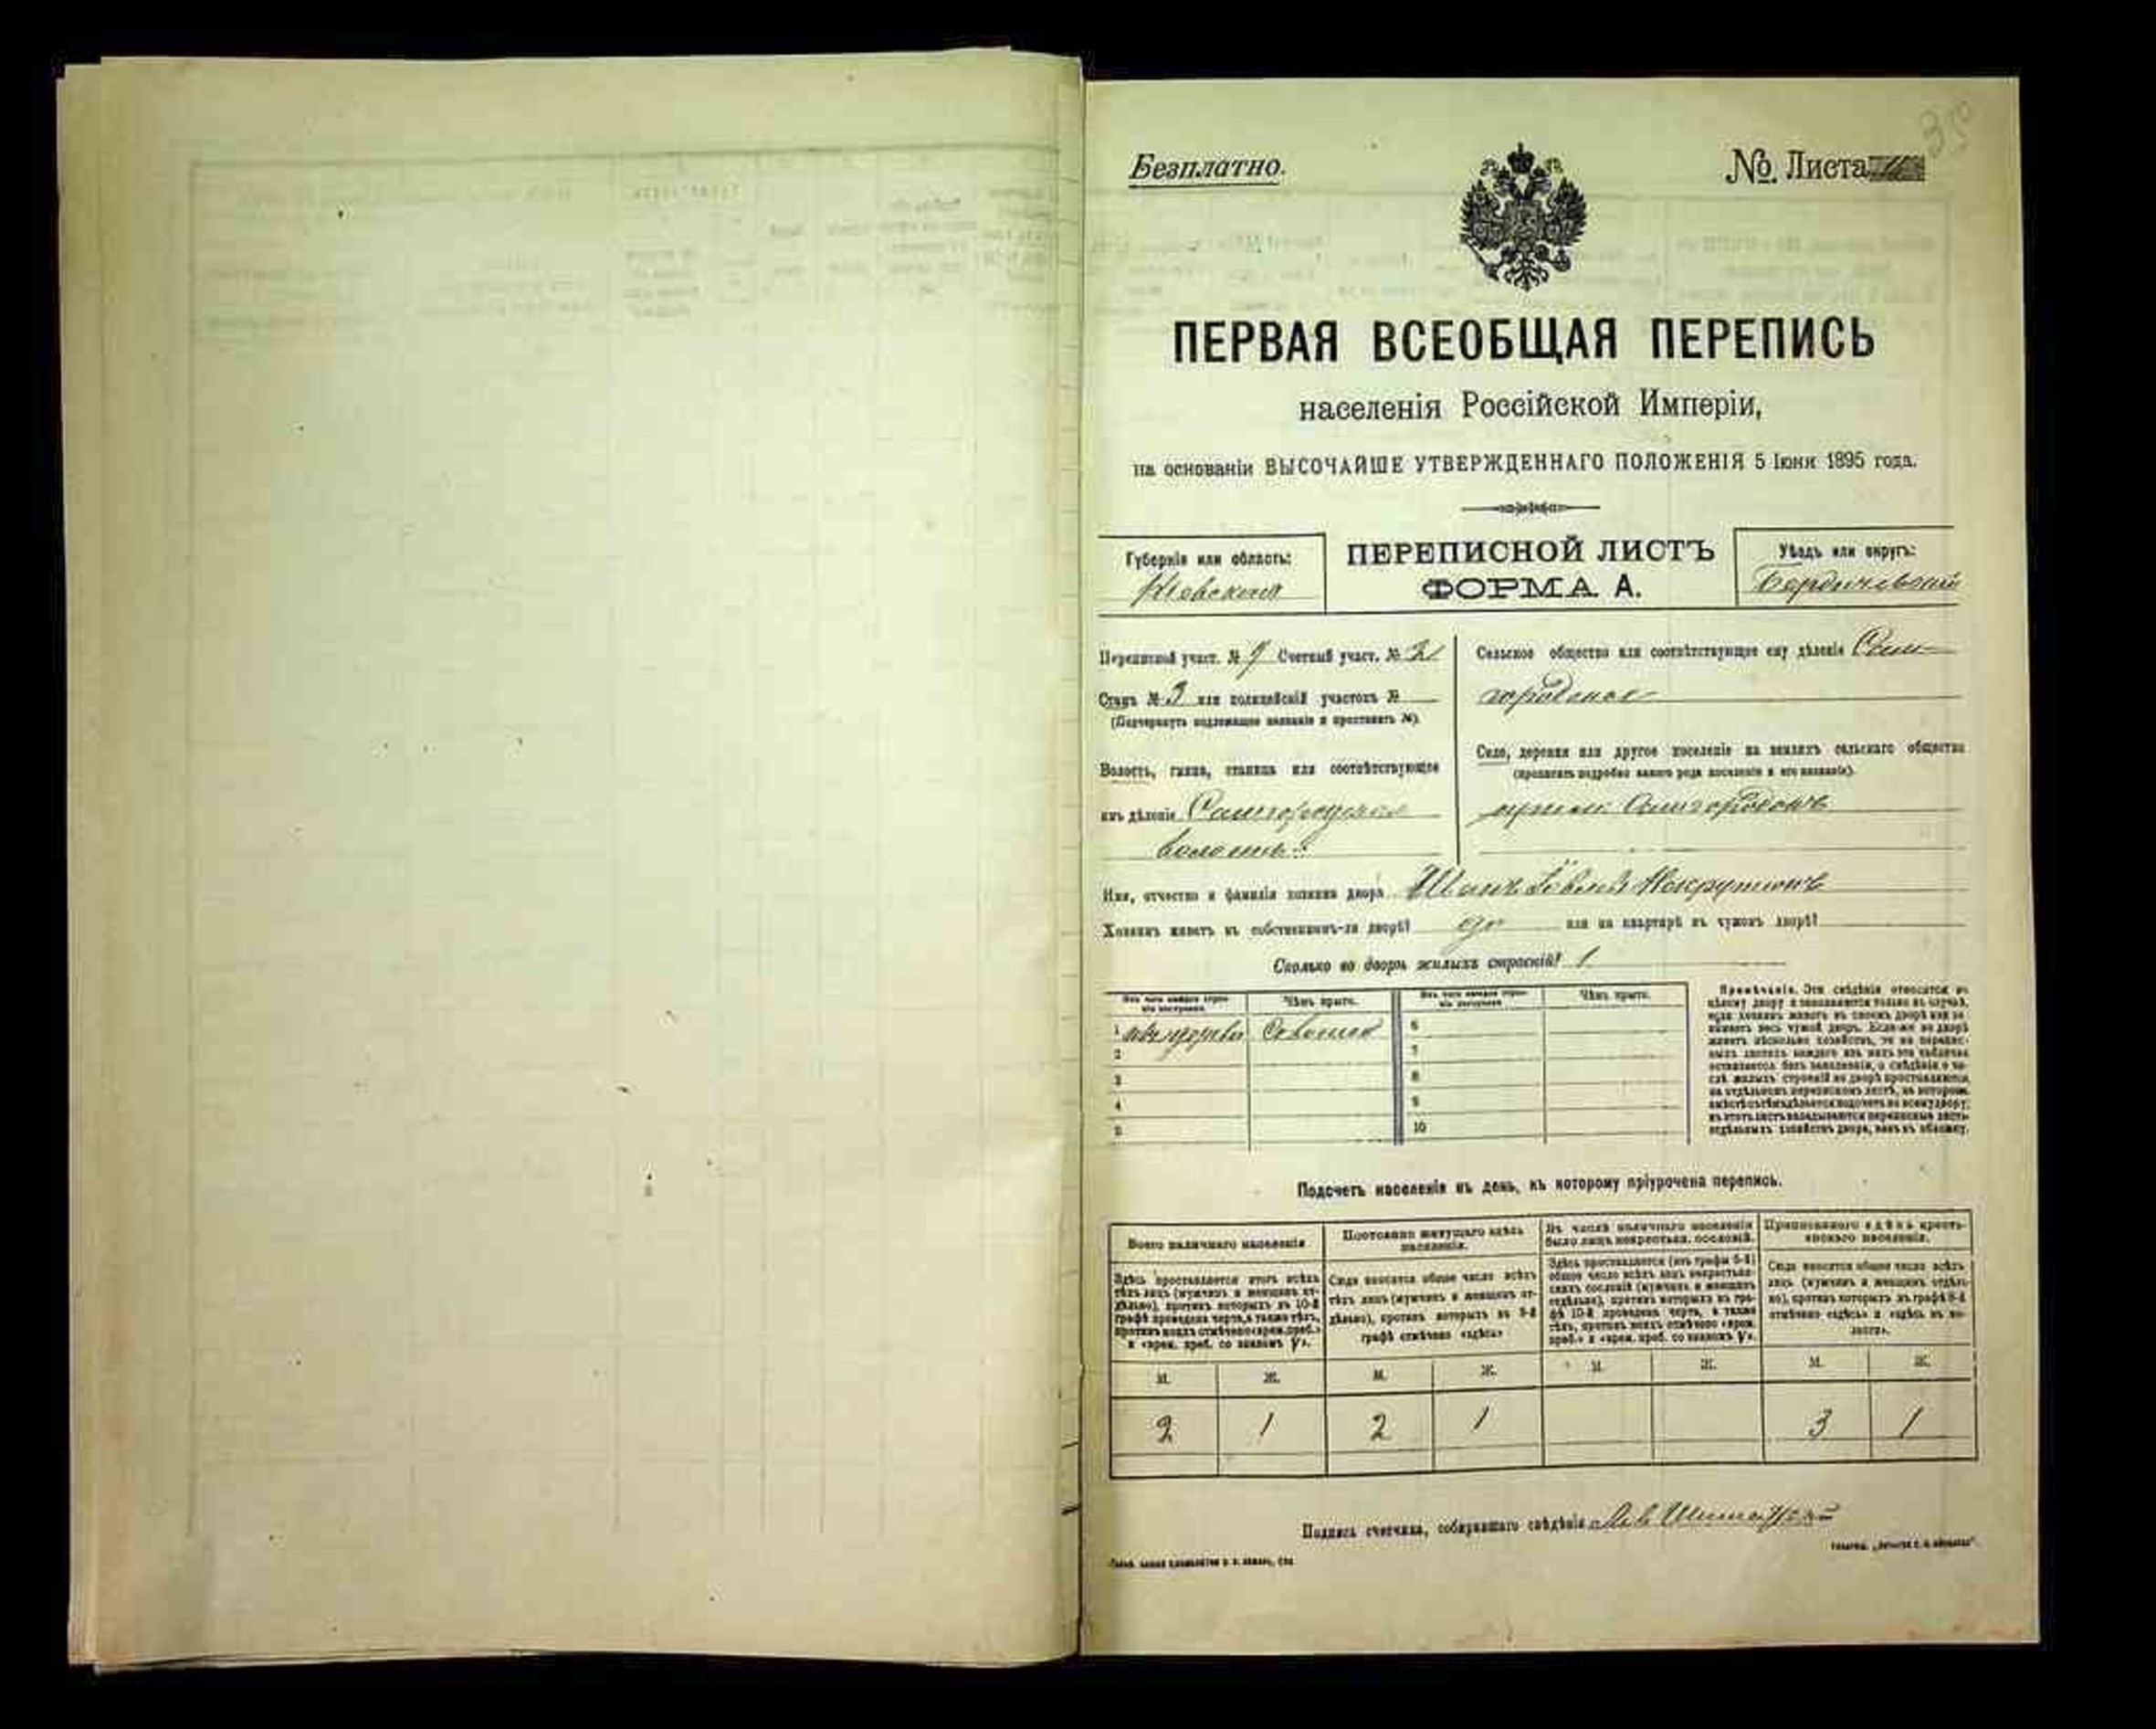 35
Безплатно.
№ Листа
ПЕРВАЯ ВСЕОБЩАЯ ПЕРЕПИСЬ
населенія Россійской Имперіи,
на основаніи ВЫСОЧАЙШЕ УТВЕРЖДЕННАГО ПОЛОЖЕНІЯ 5 Іюня 1895 года.
Губернія или область:
Кіевская
ПЕРЕПИСНОЙ ЛИСТЪ
ФОРМА А.
Уѣздъ или округъ:
Бердичевскій
Переписной участ. № 9 Счетный участ. № 2
Станъ № 3 или полицейскій участокъ №
(Подчеркнуть подлежащее названіе и проставить №).
Волость, гмина, станица или соотвѣтствующее
имъ дѣленіе
волость
Сельское общество или соотвѣтствующее ему дѣленіе
Село, деревня или другое поселеніе на земляхъ сельскаго общества
(прописать подробно какого рода поселеніе и его названіе).
Имя, отчество и фамилія хозяина двора
Хозяинъ живетъ въ собственномъ-ли дворѣ? да или на квартирѣ въ чужомъ дворѣ?
Сколько во дворѣ жилыхъ строеній? 1
Изъ чего каждое строеніе построено. Чѣмъ крыто. Изъ чего каждое строеніе построено. Чѣмъ крыто.
1 изъ дерева Соломой 6
2 7
3 8
4 9
5 10
Примѣчаніе. Эти свѣдѣнія относятся къ
цѣлому двору и заполняются только въ случаѣ,
если хозяинъ живетъ въ своемъ дворѣ или занимаетъ весь чужой дворъ. Если-же во дворѣ
живетъ нѣсколько хозяйствъ, то на переписныхъ листахъ каждаго изъ нихъ эта табличка
оставляется безъ заполненія, а свѣдѣнія о числѣ жилыхъ строеній во дворѣ проставляются
на отдѣльномъ переписномъ листѣ, на которомъ
вмѣстѣ съ тѣмъ дѣлается подсчетъ по всему двору;
въ этотъ листъ вкладываются переписные листы
отдѣльныхъ хозяйствъ двора, какъ въ обложку.
Подсчетъ населенія въ день, къ которому пріурочена перепись.
Всего наличнаго населенія
Здѣсь проставляется итогъ всѣхъ
тѣхъ лицъ (мужчинъ и женщинъ отдѣльно), противъ которыхъ въ 10-й
графѣ проведена черта, а также тѣхъ,
противъ коихъ отмѣчено «врем. преб.»
и «врем. преб. со знакомъ V».
Постоянно живущаго здѣсь населенія.
Сюда вносится общее число всѣхъ
тѣхъ лицъ (мужчинъ и женщинъ отдѣльно), противъ которыхъ въ 9-й
графѣ отмѣчено «здѣсь»
Въ числѣ наличнаго населенія
было лицъ некрестьян. сословій.
Здѣсь проставляется (изъ графы 6-й)
общее число всѣхъ лицъ некрестьянскихъ сословій (мужчинъ и женщинъ
отдѣльно), противъ которыхъ въ графѣ 10-й проведена черта, а также
тѣхъ, противъ коихъ отмѣчено «врем.
преб.» и «врем. преб. со знакомъ V».
Приписаннаго здѣсь крестьянскаго населенія.
Сюда вносится общее число всѣхъ
лицъ (мужчинъ и женщинъ отдѣльно), противъ которыхъ въ графѣ 8-й
отмѣчено «здѣсь» и «здѣсь въ волости».
М. Ж. М. Ж. М. Ж. М. Ж.
2 1 2 1 3 1
Подпись счетчика, собиравшаго свѣдѣнія